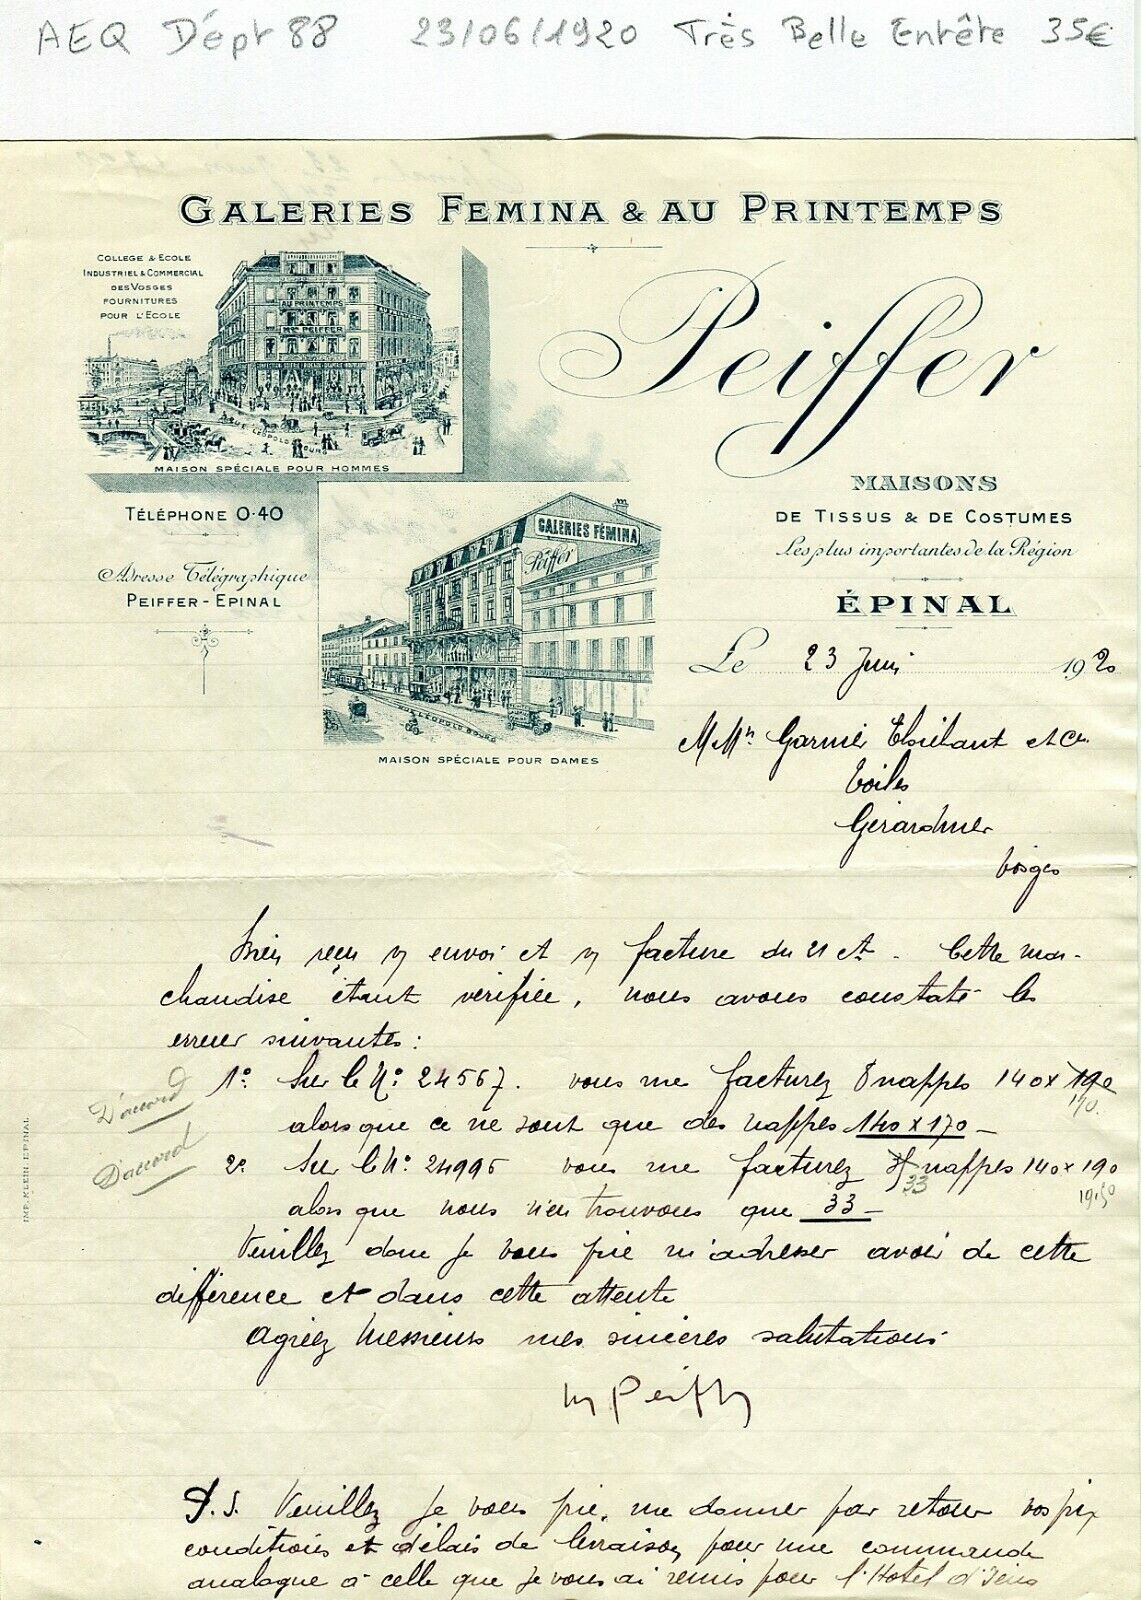 AEQ Dépt 88 23/06/1920 Très Belle Entête 35€
GALERIES FEMINA & AU PRINTEMPS
COLLEGE & ECOLE
INDUSTRIEL & COMMERCIAL
DES VOSGES
FOURNITURES
POUR L'ECOLE
AU PRINTEMPS
Mon PEIFFER
RUE LEOPOLD BOURG
MAISON SPÉCIALE POUR HOMMES
Peiffer
MAISONS
DE TISSUS & DE COSTUMES
Les plus importantes de la Région
ÉPINAL
TÉLÉPHONE 0-40
Adresse Télégraphique
PEIFFER - EPINAL
GALERIES FÉMINA
Peiffer
RUE LEOPOLD BOURG
MAISON SPÉCIALE POUR DAMES
Le 23 Juin 1920
MMrs Garnier Thiébaut et Cie
Toiles
Gérardmer
Vosges
Bien reçu v/ envoi et v/ facture du 21 ct. Cette mar-
chandise étant vérifiée, nous avons constaté les
erreur suivantes :
D'accord 1°. Sur le N° 24567. vous me facturez 8 nappes 140 x 190
170.
alors que ce ne sont que des nappes 140 x 170 -
D'accord 2°. Sur le N° 24996 vous me facturez nappes 140 x 190
33 19.50
alors que nous n'en trouvons que 33 -
Veuillez donc je vous prie m'adresser avoir de cette
différence et dans cette attente
Agréez Messieurs mes sincères salutations
Peiffer
P.S. Veuillez je vous prie, me donner par retour vos prix
conditions et délais de livraison, pour une commande
analogue à celle que je vous ai remis pour l'Hotel d'
IMP. KLEIN. EPINAL